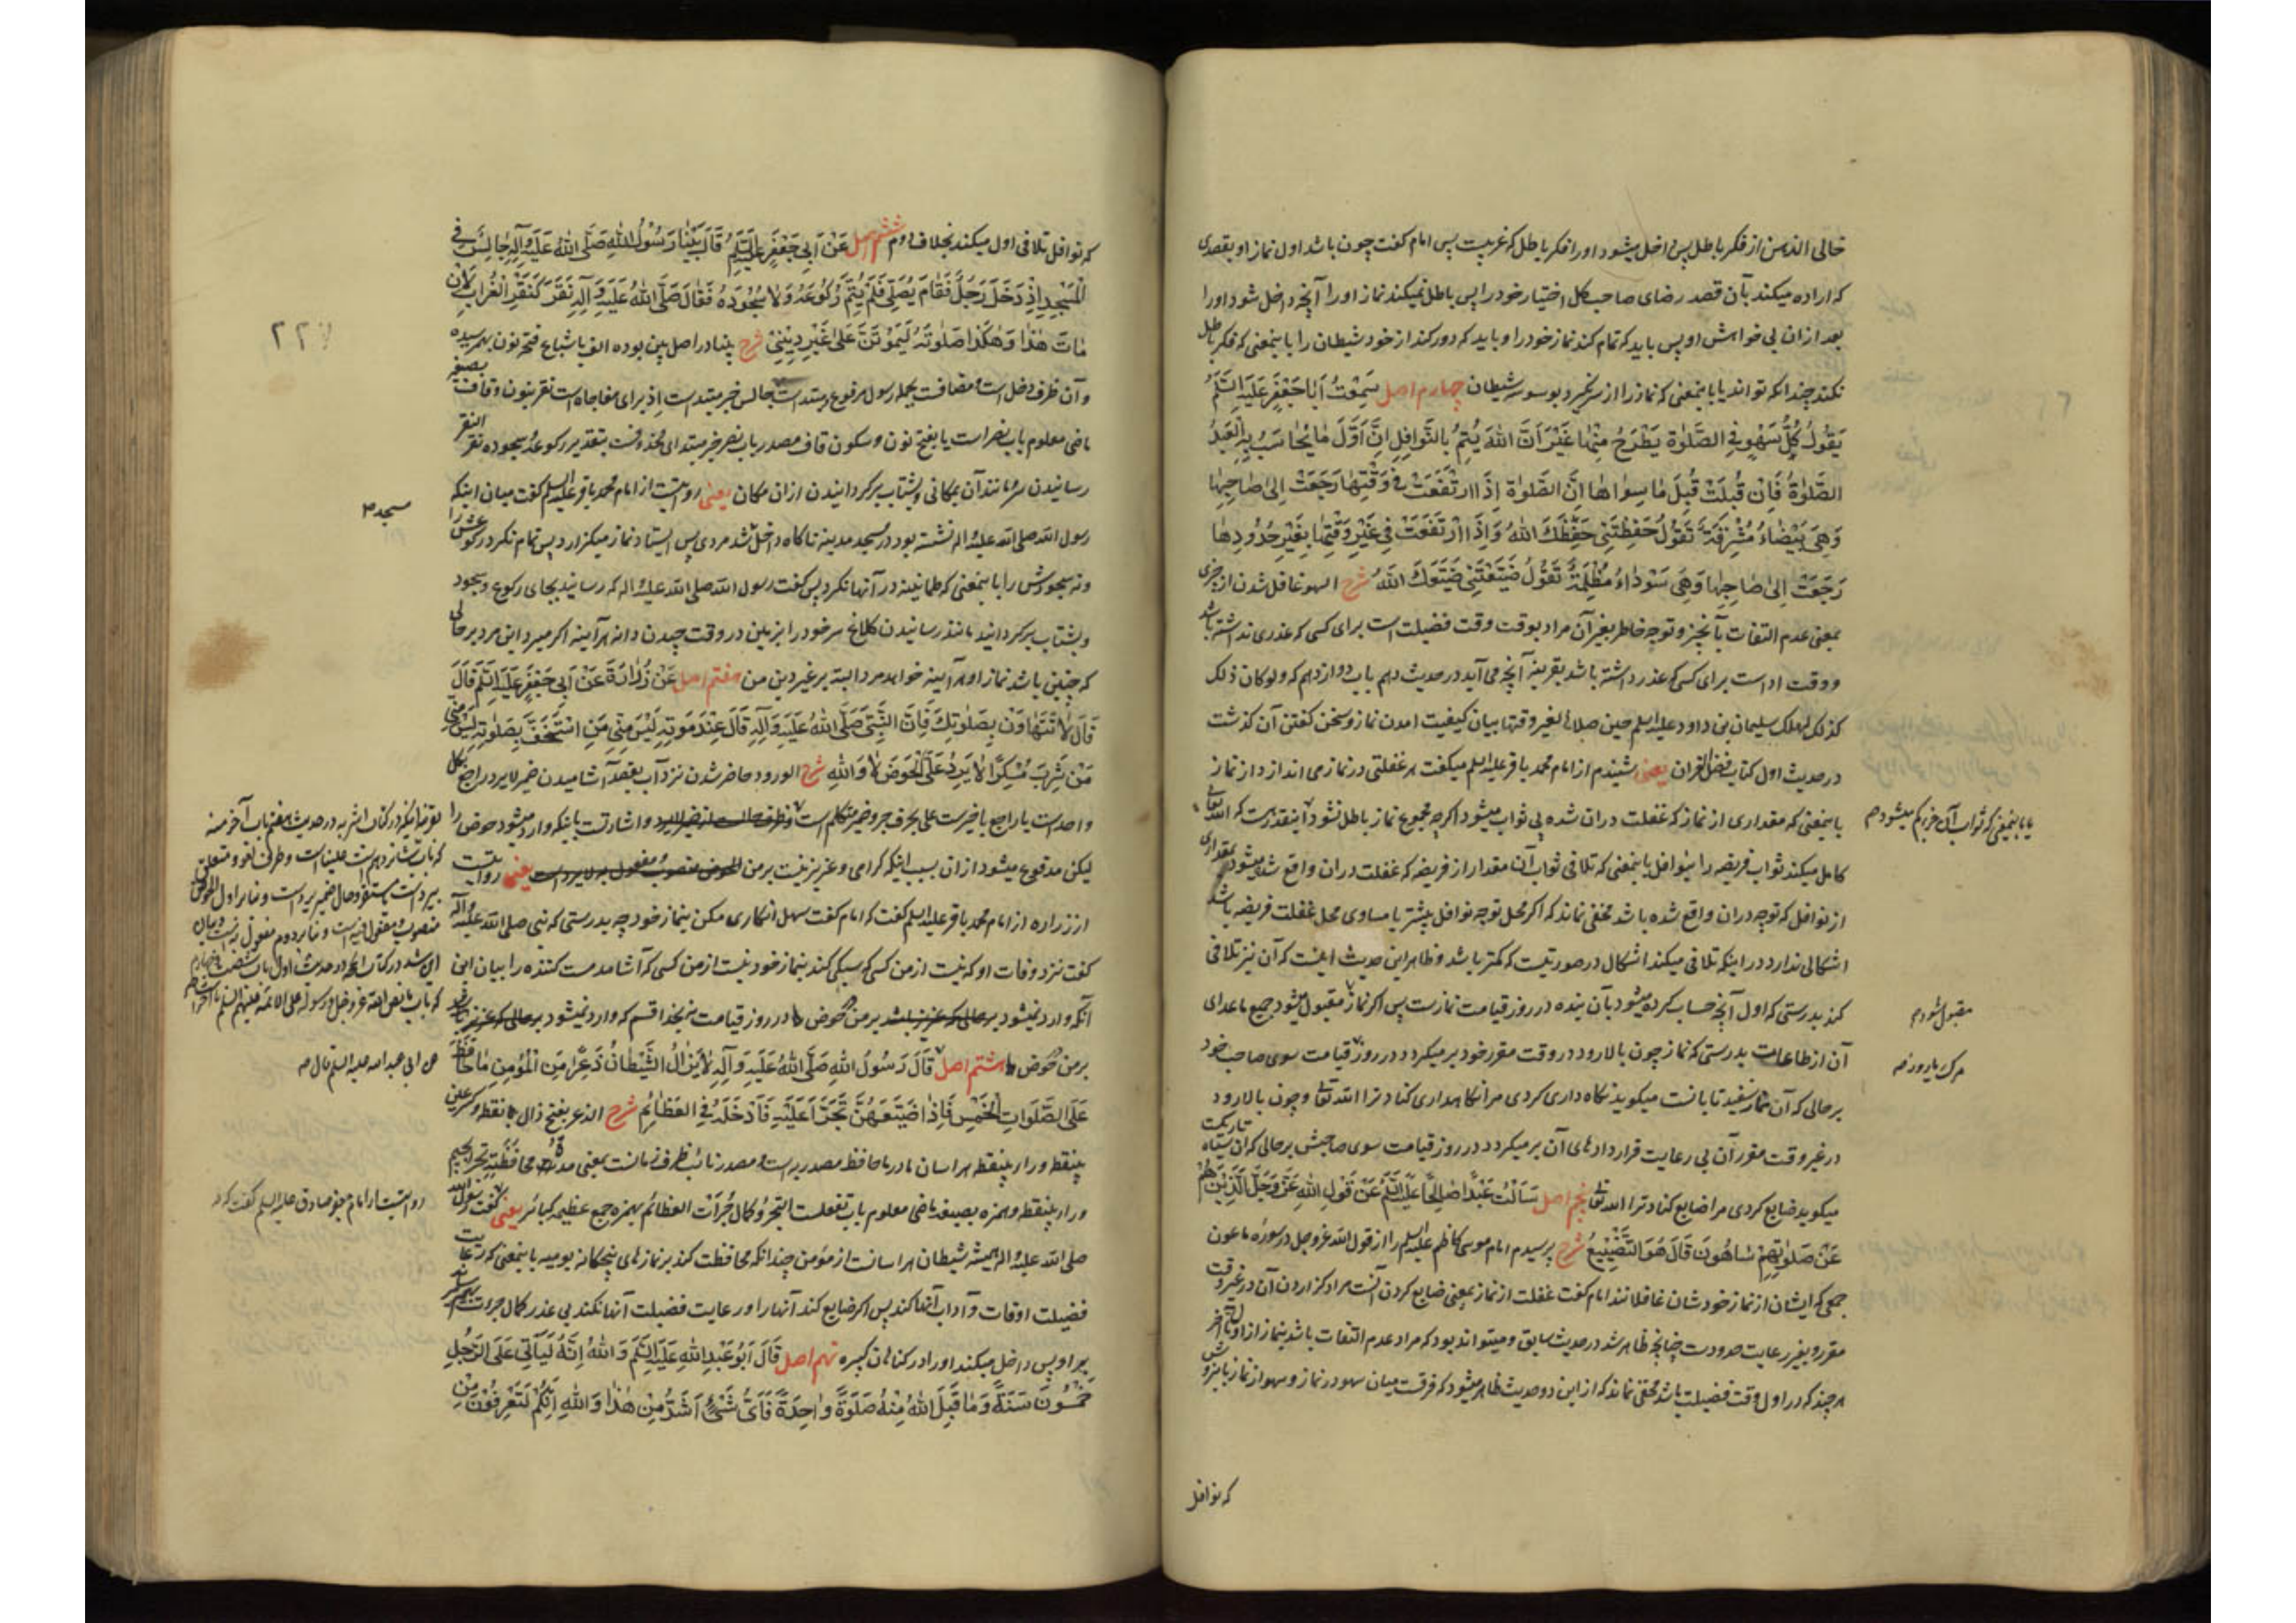 خالی الذهن از فکر باطل پس داخل میشود او را فکر باطل که غریبست پس امام گفت چون باشد اول نماز او بقصدی
که اراده میکند بآن قصد رضای صاحب کل اختیار خود را پس باطل نمیکند نماز او را آنچه داخل شود او را
بعد از ان بی خواهش او پس باید که تمام کند نماز خود را و باید که دور کند از خود شیطان را باینمعنی که فکر باطل
نکند چندانکه تواند یا باینمعنی که نماز را از سر نگیرد بوسوسه شیطان چهارم اصل سَمِعْتُ اَبَا جَعْفَرٍ عَلَیْهِ السَّلَمُ
یَقُولُ کُلُّ سَهْوٍ فِی الصَّلٰوةِ یَطْرَحُ مِنْهَا غَیْرَ اَنَّ اللّٰهَ یُتِمُّ بِالنَّوَافِلِ اِنَّ اَوَّلَ مَا یُحَاسَبُ بِهِ الْعَبْدُ
الصَّلٰوةُ فَاِنْ قُبِلَتْ قُبِلَ مَا سِوَاهَا اِنَّ الصَّلٰوةَ اِذَا ارْتَفَعَتْ فِی وَقْتِهَا رَجَعَتْ اِلیٰ صَاحِبِهَا
وَهِیَ بَیْضَاءُ مُشْرِقَةٌ تَقُولُ حَفِظْتَنِی حَفِظَکَ اللّٰهُ وَاِذَا ارْتَفَعَتْ فِی غَیْرِ وَقْتِهَا بِغَیْرِ حُدُودِهَا
رَجَعَتْ اِلیٰ صَاحِبِهَا وَهِیَ سَوْدَاءُ مُظْلِمَةٌ تَقُولُ ضَیَّعْتَنِی ضَیَّعَکَ اللّٰهُ شرح السهو غافل شدن از چیزی
بمعنی عدم التفات بآنچیز و توجه خاطر بغیر آن مراد بوقت وقت فضیلت است برای کسی که عذری نداشته باشد
و وقت اداست برای کسی که عذر داشته باشد بقرینه آنچه می آید در حدیث دهم باب دوازدهم که ولو کان ذلک
کذلک لهلک سلیمان بن داود علیه السلم حین صلاها لغیر وقتها بیان کیفیت امدن نماز و سخن کفتن آن کذشت
در حدیث اول کتاب فضل القران یعنی شنیدم از امام محمد باقر علیه السلم میکفت هر غفلتی در نماز می اندازد از نماز
باینمعنی که مقداری از نماز که غفلت دران شده بی ثواب میشود اگرچه مجموع نماز باطل نشود اینقدر هست که الله تعالی
یا باینمعنی که ثواب آن جزء کم میشود م
کامل میکند ثواب فریضه را بنوافل باینمعنی که تلافی ثواب آن مقدار از فریضه که غفلت دران واقع شد میشود بمقداری
از نوافل که توجه دران واقع شده باشد مخفی نماند که اگر محل توجه نوافل بیشتر یا مساوی محل غفلت فریضه باشد
اشکالی ندارد در اینکه تلافی میکند اشکال در صورتیست که کمتر باشد و ظاهر این حدیث اینست که آن نیز تلافی
کند بدرستی که اول آنچه حساب کرده میشود بآن بنده در روز قیامت نمازست پس اگر نماز مقبول میشود جمیع ماعدای
مقبول شود م
آن از طاعات بدرستی که نماز چون بالا رود در وقت مقرر خود بر میکردد در روز قیامت سوی صاحب خود
بر حالی که آن نماز سفید تابانست میکوید نکاه داری کردی مرا نکاهداری کناد ترا الله تعا و چون بالا رود
در غیر وقت مقرر آن بی رعایت قراردادهای آن بر میکردد در روز قیامت سوی صاحبش بر حالی که ان سیاه تاریکست
میکوید ضایع کردی مرا ضایع کناد ترا الله تعا پنجم اصل سَاَلْتُ عَبْدًا صَالِحًا عَلَیْهِ السَّلَمُ عَنْ قَوْلِ اللّٰهِ عَزَّ وَجَلَّ الَّذِینَ هُمْ
عَنْ صَلٰوتِهِمْ سَاهُونَ قَالَ هُوَ التَّضْیِیعُ شرح پرسیدم امام موسی کاظم علیه السلم را از قول الله عز و جل در سوره ماعون
جمعی که ایشان از نماز خودشان غافلانند امام کفت غفلت از نماز بمعنی ضایع کردن آنست مراد کزاردن آن در غیر وقت
مقرر و بغیر رعایت حدودست چنانچه ظاهر شد در حدیث سابق و میتواند بود که مراد عدم التفات باشد بنماز از اول تا آخر
هر چند که در اول وقت فضیلت باشد مخفی نماند که از این دو حدیث ظاهر میشود که فرقست میان سهو در نماز و سهو از نماز
که نوافل
که نوافل تلافی اول میکند بخلاف دوم ششم اصل عَنْ اَبِی جَعْفَرٍ عَلَیْهِ السَّلَمُ قَالَ بَیْنَا رَسُولُ اللّٰهِ صَلَّی اللّٰهُ عَلَیْهِ وَآلِهِ جَالِسٌ فِی
الْمَسْجِدِ اِذْ دَخَلَ رَجُلٌ فَقَامَ یُصَلِّی فَلَمْ یُتِمَّ رُکُوعَهُ وَلَا سُجُودَهُ فَقَالَ صَلَّی اللّٰهُ عَلَیْهِ وَآلِهِ نَقَرَ کَنَقْرِ الْغُرَابِ لَاِنْ
مَاتَ هٰذَا وَهٰکَذَا صَلٰوتُهُ لَیَمُوتَنَّ عَلیٰ غَیْرِ دِینِی شرح بینا در اصل بین بوده الف باشباع فتحه نون بهمرسیده
٢٢
و آن ظرف دخل است و مضافست بجمله رسول مرفوع و مبتداست جالس خبر مبتداست اذ برای مفاجاه است نقر بنون و قاف بصیغه
ماضی معلوم باب نصر است یا بفتح نون و سکون قاف مصدر باب نصر خبر مبتدای محذوفست بتقدیر رکوعه و سجوده نقر النقر
رسانیدن سر مانند آن بمکانی و بشتاب بر کردانیدن ازان مکان یعنی روایتست از امام محمد باقر علیه السلم کفت میان اینکه
رسول الله صلی الله علیه و اله نشسته بود در مسجد مدینه ناکاه داخل شد مردی پس ایستاد نماز میکزارد پس تمام نکرد رکوعش را
مسجد م
و نه سجودش را باینمعنی که طمانینه در آنها نکرد پس کفت رسول الله صلی الله علیه و اله که رسانید بجای رکوع و سجود
و بشتاب بر کردانید مانند رسانیدن کلاغ سر خود را بزمین در وقت چیدن دانه هر آینه اکر میرد این مرد بر حالی
که چنین باشد نماز او هر آینه خواهد مرد البته بر غیر دین من هفتم اصل عَنْ زُرَارَةَ عَنْ اَبِی جَعْفَرٍ عَلَیْهِ السَّلَمُ قَالَ
قَالَ لَا تَتَهَاوَنْ بِصَلٰوتِکَ فَاِنَّ النَّبِیَّ صَلَّی اللّٰهُ عَلَیْهِ وَآلِهِ قَالَ عِنْدَ مَوْتِهِ لَیْسَ مِنِّی مَنِ اسْتَخَفَّ بِصَلٰوتِهِ لَیْسَ مِنِّی
مَنْ شَرِبَ مُسْکِرًا لَا یَرِدُ عَلَیَّ الْحَوْضَ لَا وَاللّٰهِ شرح الورود حاضر شدن نزد آب بقصد آشامیدن ضمیر لا یرد راجع بکل
واحد است یا راجع باخیرست علی بحرف جر و ضمیر متکلم است و اشارتست باینکه وارد میشود حوض را
لیکن مدفوع میشود ازان بسبب اینکه کرامی و عزیز نیست بر من یعنی روایتست
از زراره از امام محمد باقر علیه السلم کفت که امام کفت سهل انکاری مکن بنماز خود چه بدرستی که نبی صلی الله علیه و آله
کفت نزد وفات او که نیست از من کسی که سبکی کند بنماز خود نیست از من کسی که آشامد مست کننده را بیان این
آنکه وارد نمیشود بر من حوض را در روز قیامت نه بخدا قسم که وارد نمیشود بر حالی که عزیز باشد
بر من حوض را هشتم اصل قَالَ رَسُولُ اللّٰهِ صَلَّی اللّٰهُ عَلَیْهِ وَآلِهِ لَا یَزَالُ الشَّیْطَانُ ذَعِرًا مِنَ الْمُؤْمِنِ مَا حَافَظَ
عن ابی عبد الله علیه السلم قال صح
عَلَی الصَّلَوَاتِ الْخَمْسِ فَاِذَا ضَیَّعَهُنَّ تَجَرَّاَ عَلَیْهِ فَاَدْخَلَهُ فِی الْعَظَائِمِ شرح الذعر بفتح ذال با نقطه و کسر عین
بینقطه و راء بینقطه هراسان ما در ما حافظ مصدریه است و مصدر نائب ظرف زمانست بمعنی مدة محافظته تجرا بجیم
و راء بینقطه و همزه بصیغه ماضی معلوم باب تفعلست التجرؤ کمال جرات العظائم بهمزه جمع عظیمه کبائر یعنی کفت رسول الله
روایتست از امام جعفر صادق علیه السلم کفت که
صلی الله علیه و اله همیشه شیطان هراسانست از مؤمن چندانکه محافظت کند بر نمازهای پنجکانه یومیه باینمعنی که رعایت
فضیلت اوقات و آداب آنها کند پس اکر ضایع کند آنها را و رعایت فضیلت آنها نکند بی عذر کمال جرات بهم رساند
بر او پس داخل میکند او را در کناهان کبیره نهم اصل قَالَ اَبُو عَبْدِ اللّٰهِ عَلَیْهِ السَّلَمُ وَاللّٰهِ اِنَّهُ لَیَاْتِی عَلَی الرَّجُلِ
خَمْسُونَ سَنَةً وَمَا قَبِلَ اللّٰهُ مِنْهُ صَلٰوةً وَاحِدَةً فَاَیُّ شَیْءٍ اَشَدُّ مِنْ هٰذَا وَاللّٰهِ اِنَّکُمْ لَتَعْرِفُونَ مِنْ